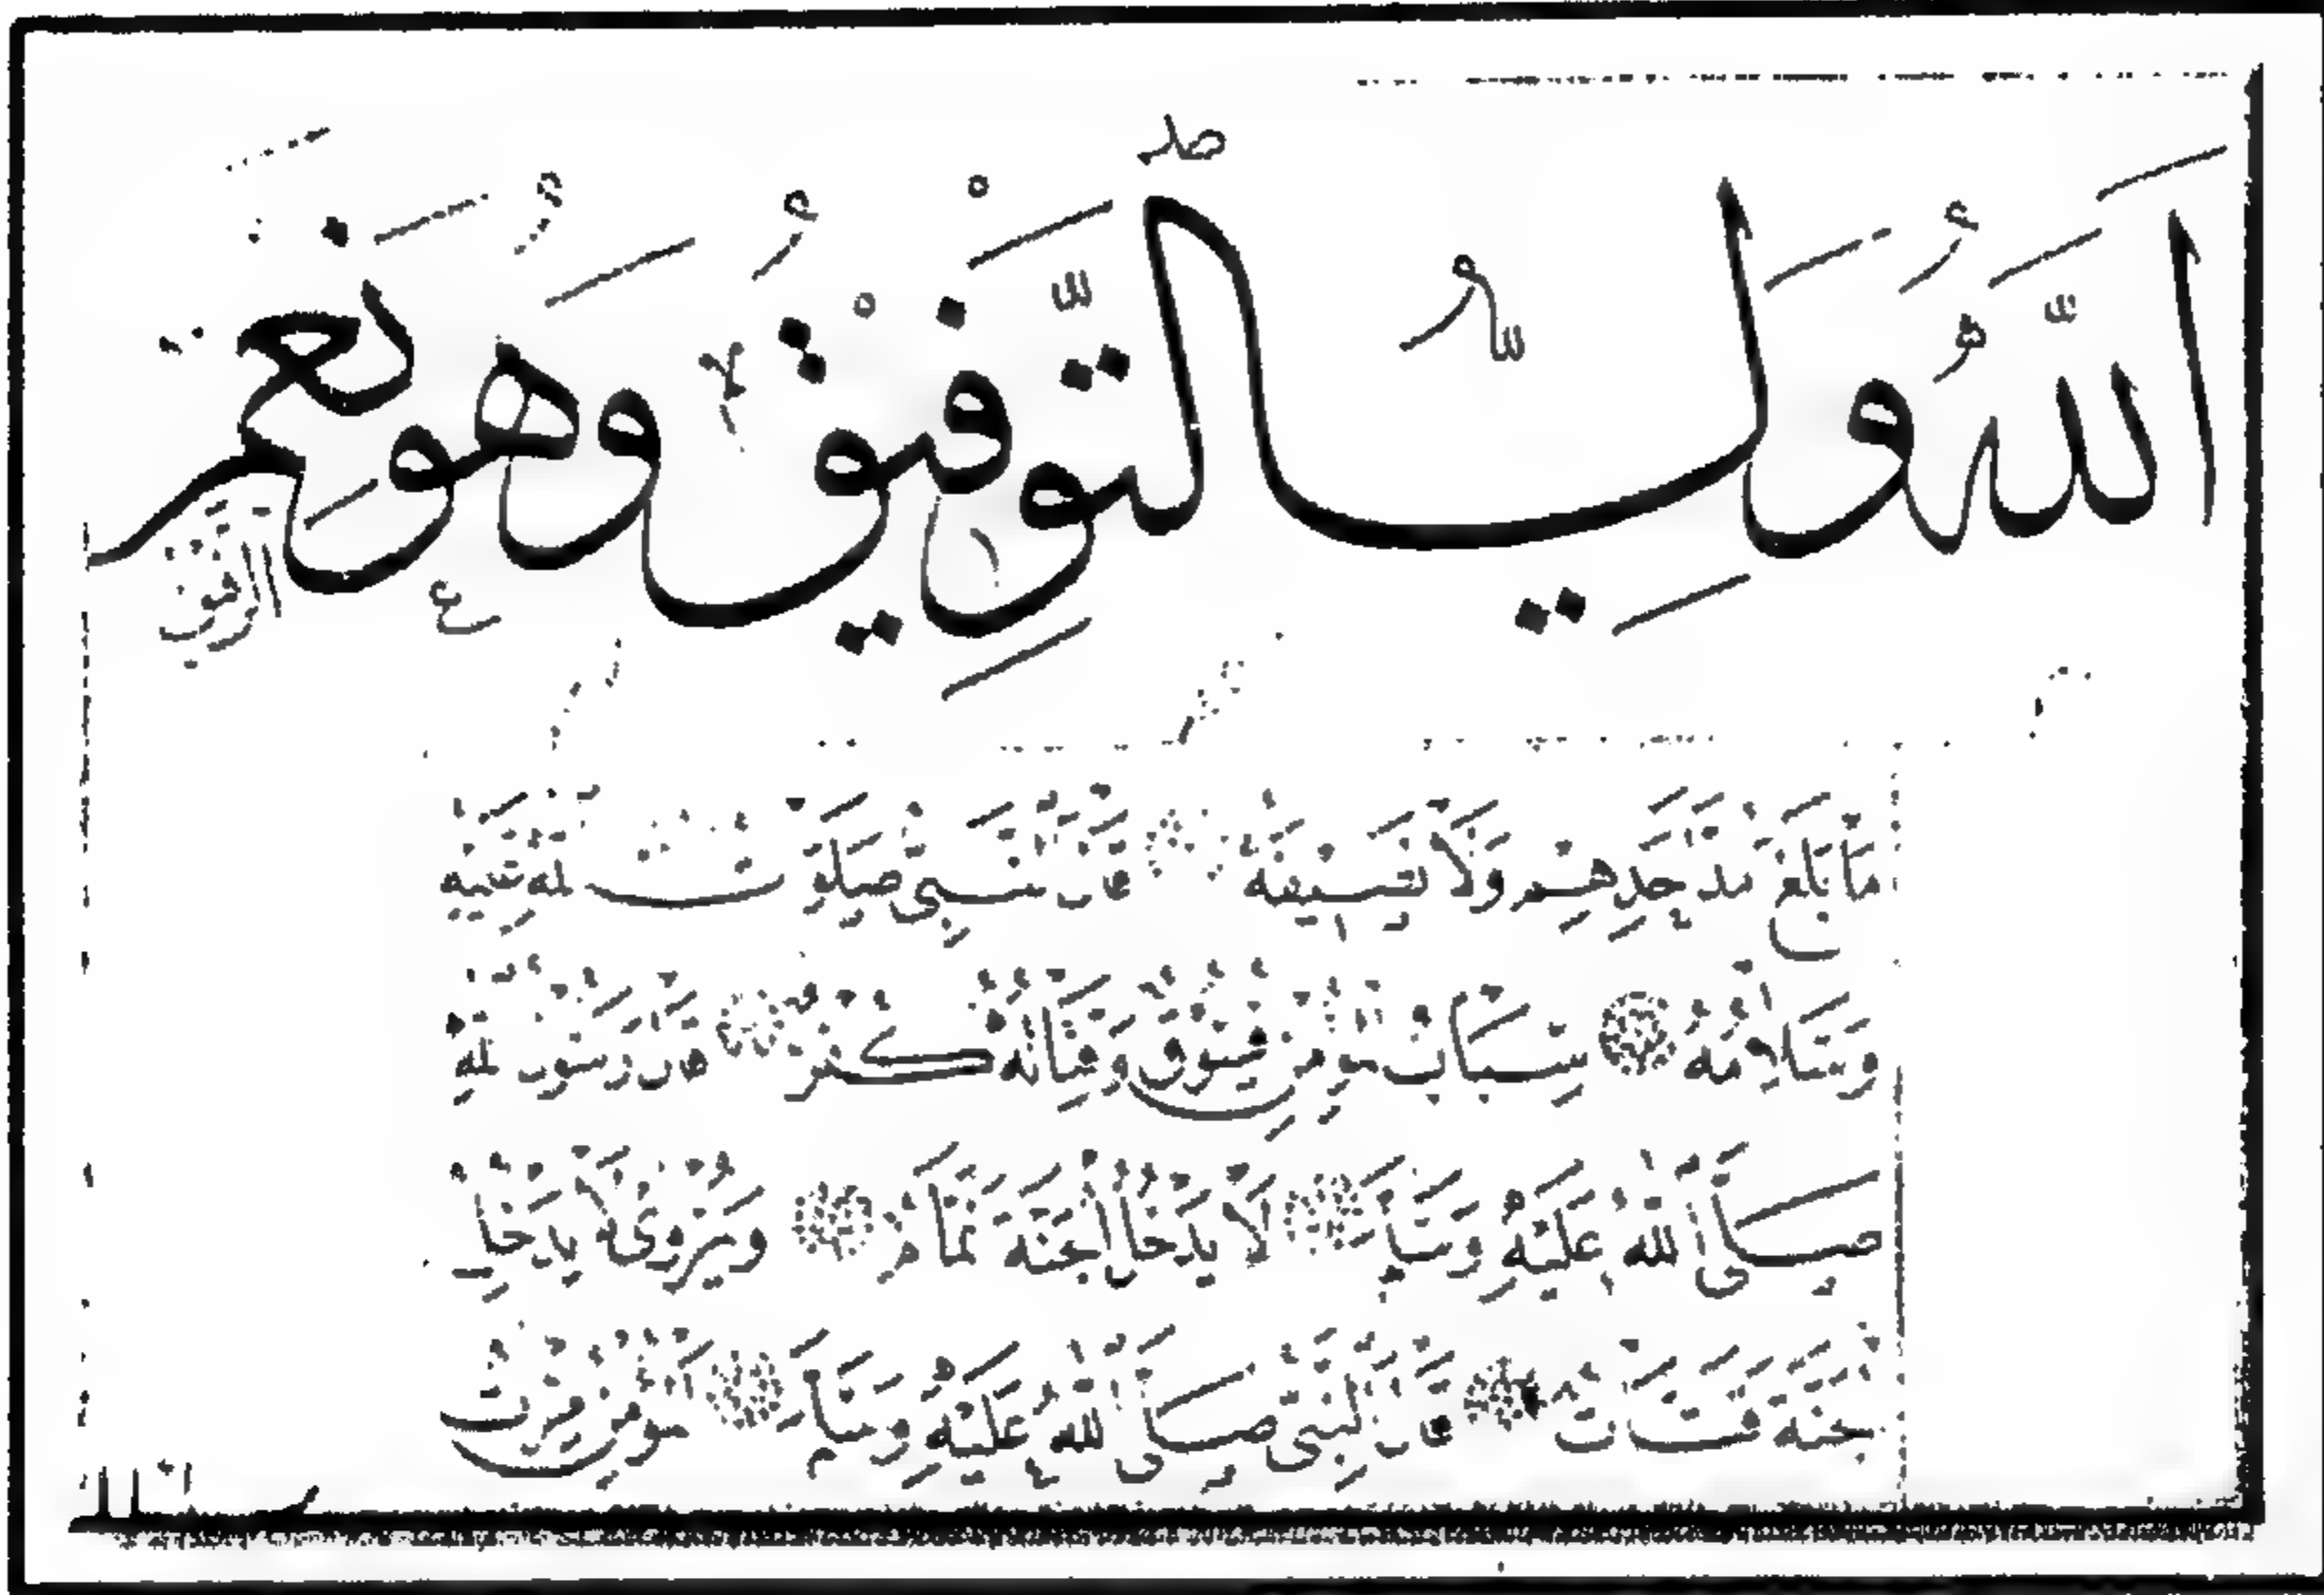 اَللّٰهُ وَلِيُّ التَّوْفِيقِ وَهُوَ نِعْمَ الرَّفِيقُ
مَا بَلَغَ مُدَّ اَحَدِهِمْ وَلَا نَصِيفَهُ قَالَ النَّبِيُّ صَلَوَاتُ اللّٰهِ عَلَيْهِ
وَسَلَامُهُ سِبَابُ الْمُؤْمِنِ فُسُوقٌ وَقِتَالُهُ كُفْرٌ قَالَ رَسُولُ اللّٰهِ
صَلَّى اللّٰهُ عَلَيْهِ وَسَلَّمَ لَا يَدْخُلُ الْجَنَّةَ نَمَّامٌ وَيُرْوٰى لَا يَدْخُلُ
الْجَنَّةَ قَتَّاتٌ قَالَ النَّبِيُّ صَلَّى اللّٰهُ عَلَيْهِ وَسَلَّمَ الْمُؤْمِنُ مِرْآتُ